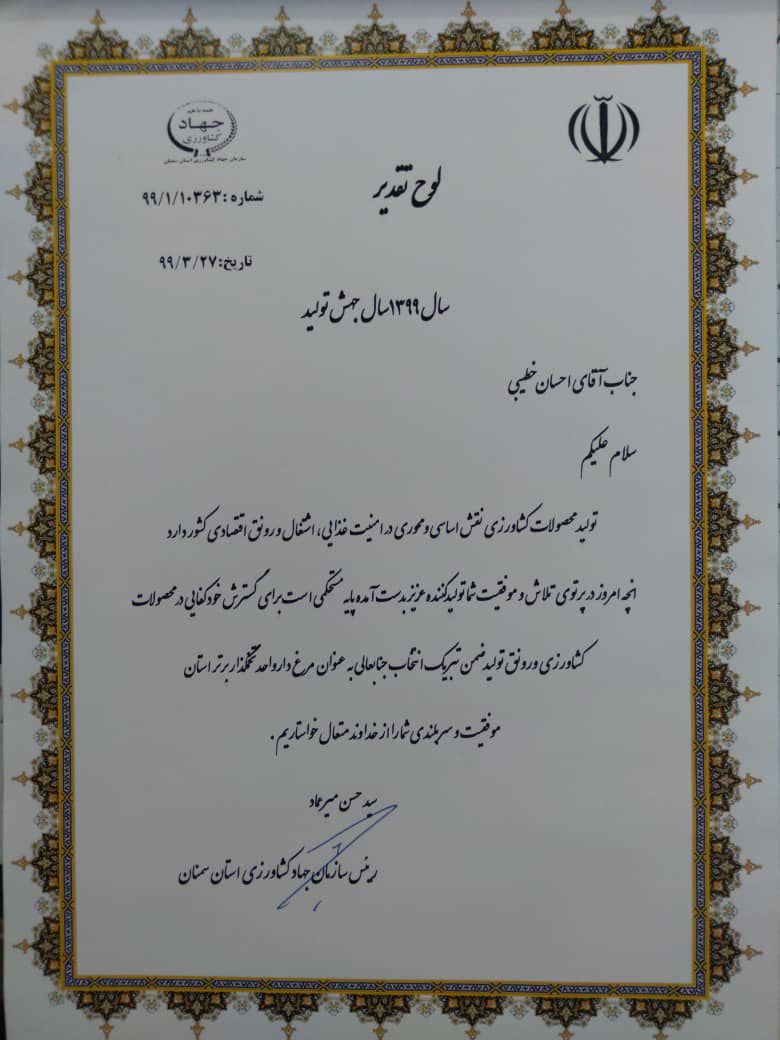 همه با هم
جهاد
کشاورزی
سازمان جهاد کشاورزی استان سمنان
لوح تقدیر
شماره :۹۹/۱/۱۰۳۶۳
تاریخ:۹۹/۳/۲۷
سال ۱۳۹۹سال جهش تولید
جناب آقای احسان خطیبی
سلام علیکم
تولید محصولات کشاورزی نقش اساسی و محوری در امنیت غذایی، اشتغال و رونق اقتصادی کشور دارد
انچه امروز در پرتوی تلاش و موفقیت شما تولیدکننده عزیز بدست آمده پایه مستحکمی است برای گسترش خودکفایی در محصولات
کشاورزی و رونق تولید ضمن تبریک انتخاب جنابعالی به عنوان مرغ دار واحد تخمگذار برتر استان
موفقیت و سربلندی شما را از خداوند متعال خواستاریم .
سید حسن میرعماد
رئیس سازمان جهاد کشاورزی استان سمنان